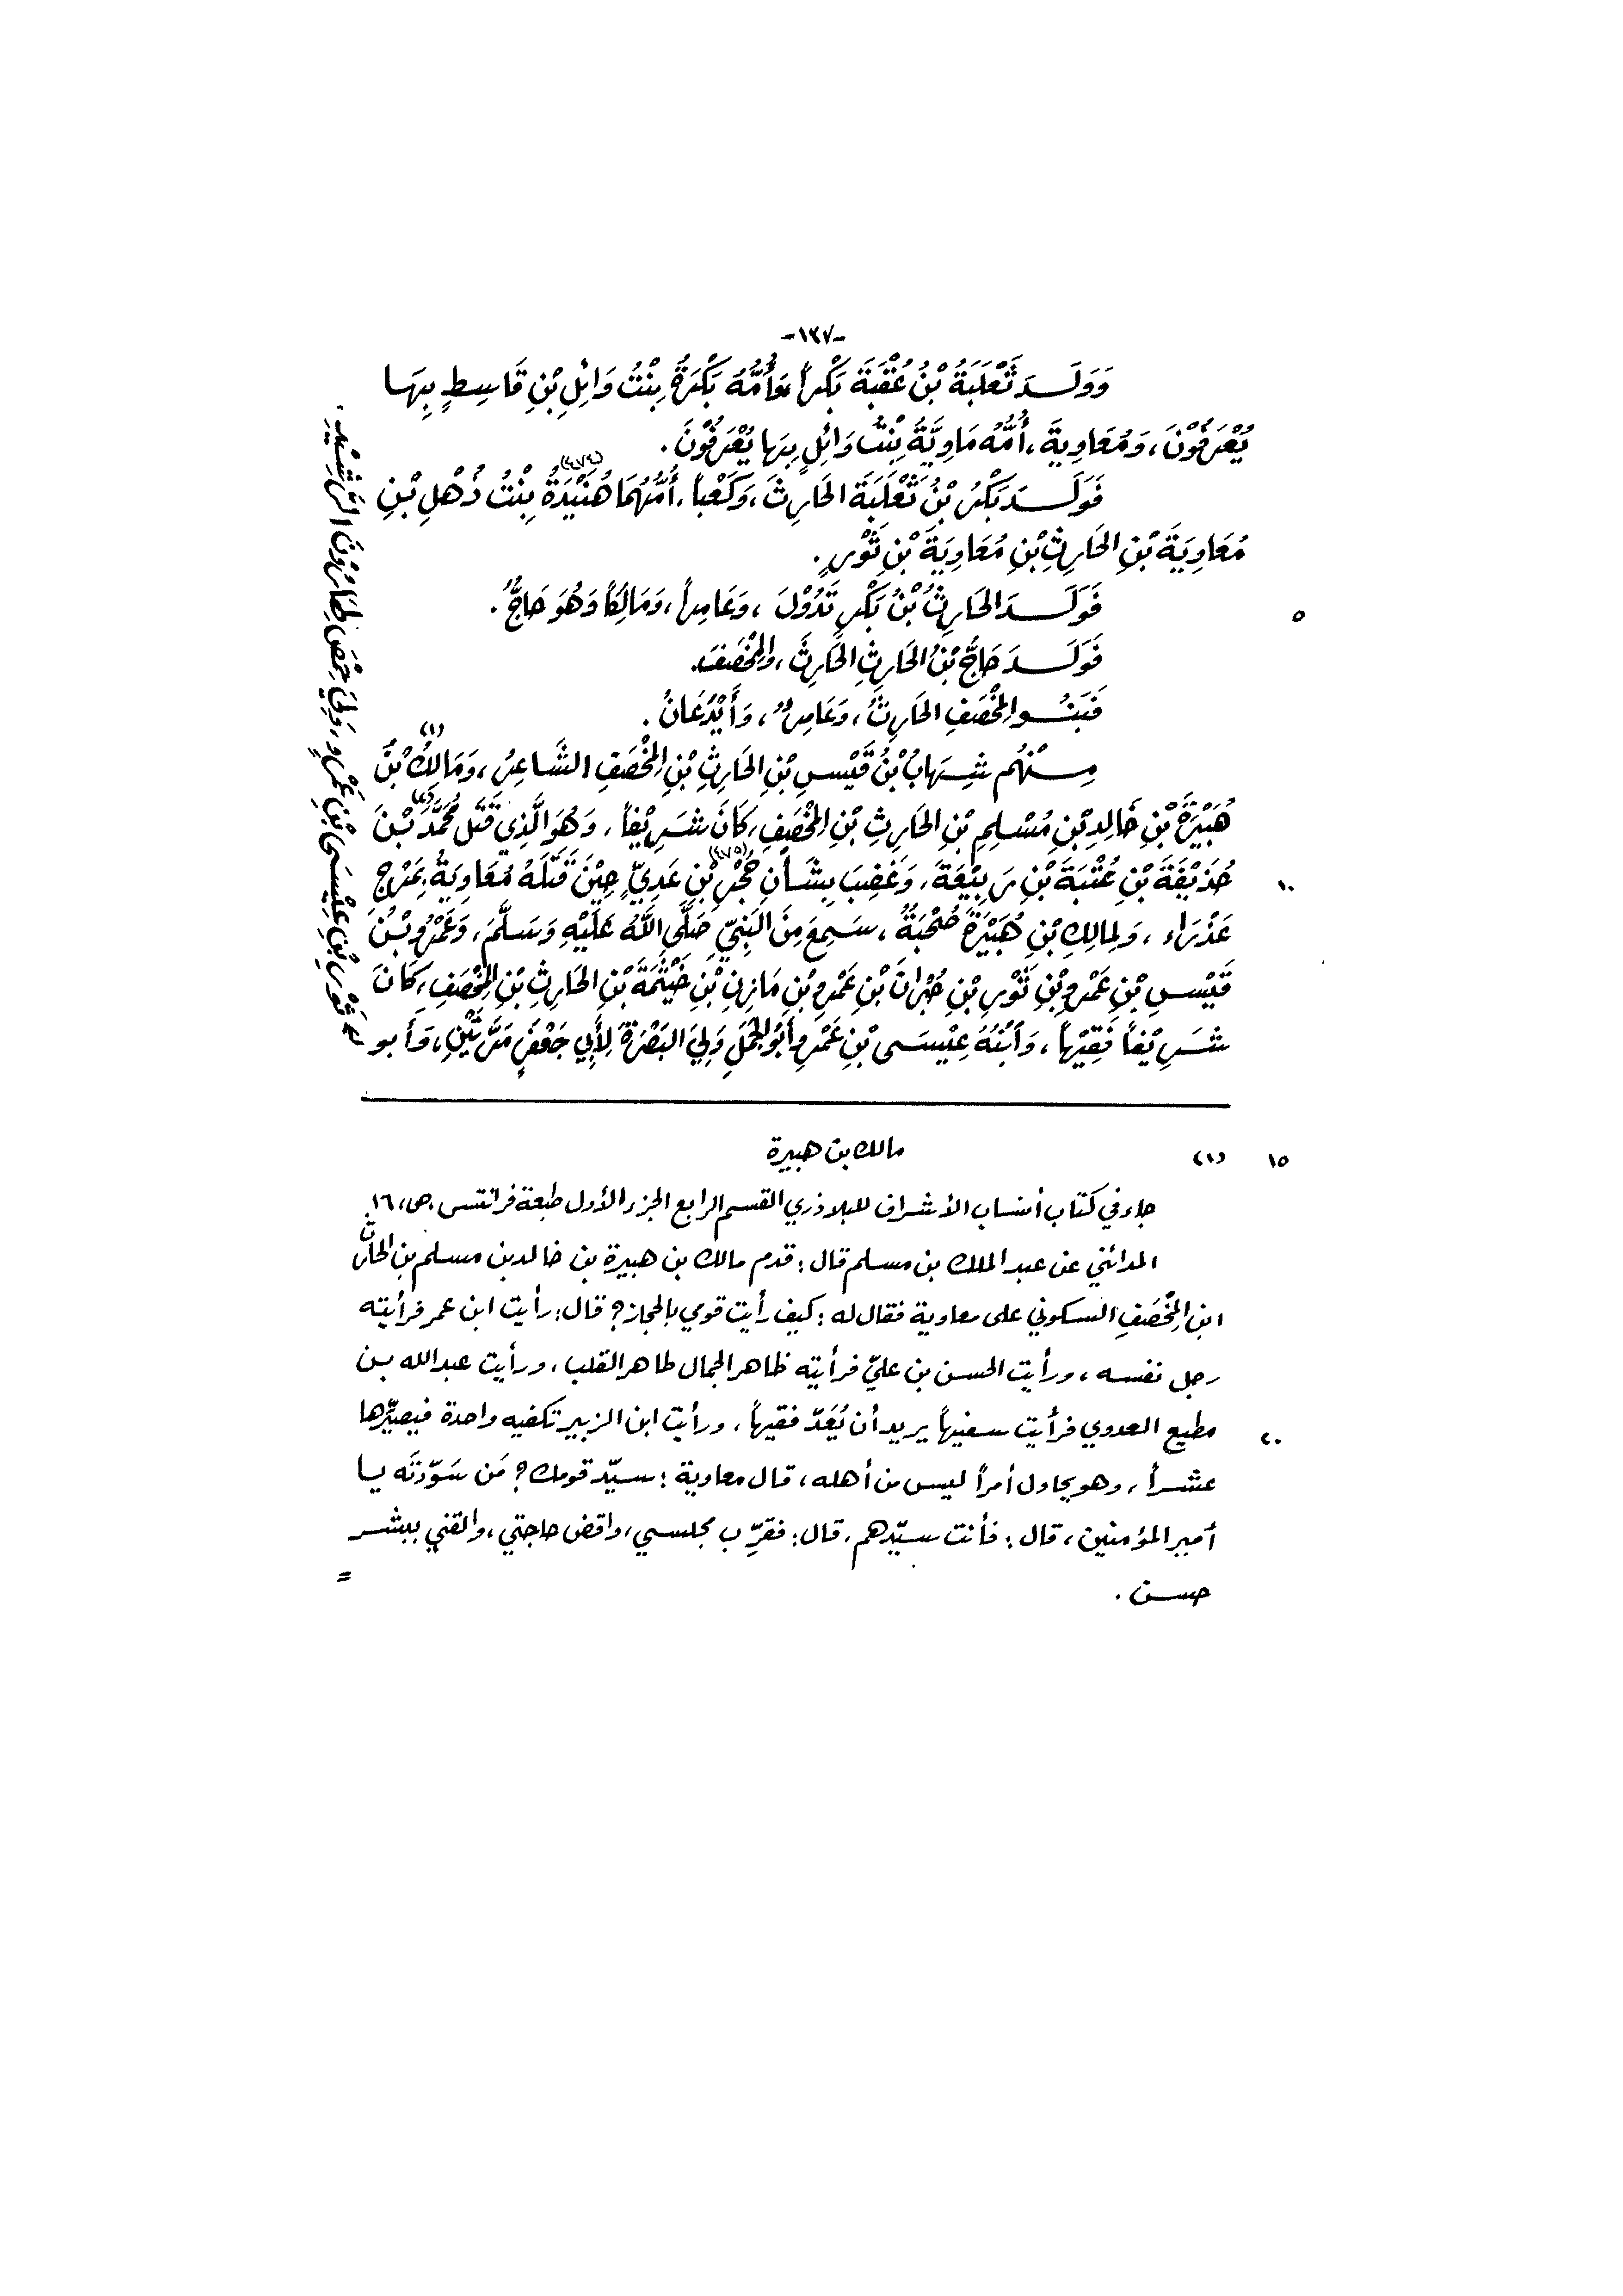 -١٣٧-
وَوَلَـدَ ثَعْلَبَةُ بْنُ عُقْبَةَ بَكْراً وَأُمُّهُ بَكْرَةُ بِنْتُ وَائِلِ بْنِ قَاسِطٍ بِهَا
يُعْرَفُوْنَ، وَمُعَاوِيَةَ، أُمُّهُ مَاوِيَّةُ بِنْتُ وَائِلٍ بِهَا يُعْرَفُوْنَ.
فَوَلَـدَ بَكْرُ بْنُ ثَعْلَبَةَ الحَارِثَ، وَكَعْباً، أُمُّهُمَا هُنَيْدَةُ (٤٧٤) بِنْتُ ذُهْلِ بْنِ
مُعَاوِيَةَ بْنِ الحَارِثِ بْنِ مُعَاوِيَةَ بْنِ ثَوْرٍ.
فَوَلَـدَ الحَارِثُ بْنُ بَكْرٍ تَدُوْلَ، وَعَامِراً، وَمَالِكاً وَهُوَ حَاجٌّ.
٥
فَوَلَـدَ حَاجُّ بْنُ الحَارِثِ الحَارِثَ، وَالِخْصَفَ.
فَبَنُـو المِخْصَفِ الحَارِثُ، وَعَامِرٌ، وَأَيْدَعَانُ.
مِـنْهُم شِهَابُ بْنُ قَيْسِ بْنِ الحَارِثِ بْنِ المِخْصَفِ الشَّاعِرُ، وَمَالِكُ (١) بْنُ
هُبَيْرَةَ بْنِ خَالِدِ بْنِ مُسْلِمِ بْنِ الحَارِثِ بْنِ المِخْصَفِ، كَانَ شَرِيْفاً، وَهُوَ الَّذِي قَتَلَ مُحَمَّدَ (٢) بْنَ
حُذَيْفَةَ بْنِ عُتْبَةَ بْنِ رَبِيْعَةَ، وَغَضِبَ بِشَأْنِ حُجْرِ (٤٧٥) بْنِ عَدِيٍّ حِيْنَ قَتَلَهُ مُعَاوِيَةُ بِمَرْجِ
١٠
عَذْرَاء، وَلِمَالِكِ بْنِ هُبَيْرَةَ صُحْبَةٌ، سَمِعَ مِنَ النَبِيِّ صَلَّى اللَّهُ عَلَيْهِ وَسَلَّمَ، وَعَمْرُو بْنُ
قَيْسِ بْنِ عَمْرِو بْنِ ثَوْرِ بْنِ خَيْرَانَ بْنِ عَمْرِو بْنِ مَازِنِ بْنِ خَيْثَمَةَ بْنِ الحَارِثِ بْنِ المِخْصَفِ، كَانَ
شَرِيْفاً فَقِيْهاً، وَٱبْنُهُ عِيْسَى بْنِ عَمْرٍو أَبُو الجَمَلِ وَلِيَ البَصْرَةَ لِأَبِي جَعْفَرٍ مَرَّتَيْنِ، وَأَبو
ثَوْرِ بْنِ عِيْسَى بْنِ عَمْرٍو، وَلِيَ حِمْصَ لِهَارُوْنَ الرَّشِيْدِ.
(١) مالك بن هبيرة
١٥
جاء في كتاب أنساب الأشراف للبلاذري القسم الرابع الجزء الأول طبعة فرانتس، ص، ١٦.
المدائني عن عبد الملك بن مسلم قال: قدم مالك بن هبيرة بن خالد بن مسلم بن الحارث
ابن المِخْصَفِ السكوني على معاوية فقال له: كيف رأيت قومي بالحجاز؟ قال: رأيت ابن عمر فرأيته
رجل نفسه، ورأيت الحسن بن عليّ فرأيته ظاهر الجمال طاهر القلب، ورأيت عبدالله بـن
مطيع العدوي فرأيت سفيهاً يريد أن يُعَدّ فقيهاً، ورأيت ابن الزبير تكفيه واحدة فيصيِّرها
٢٠
عشـراً، وهو يحاول أمراً ليس من أهله، قال معاوية: سيّد قومك؟ مَن سَوّدتَه يـا
أمير المؤمنين، قال: فأنت سيّدهم، قال: فقرِّب مجلسي، واقض حاجتي، والقني ببشـر
حسـن.
=